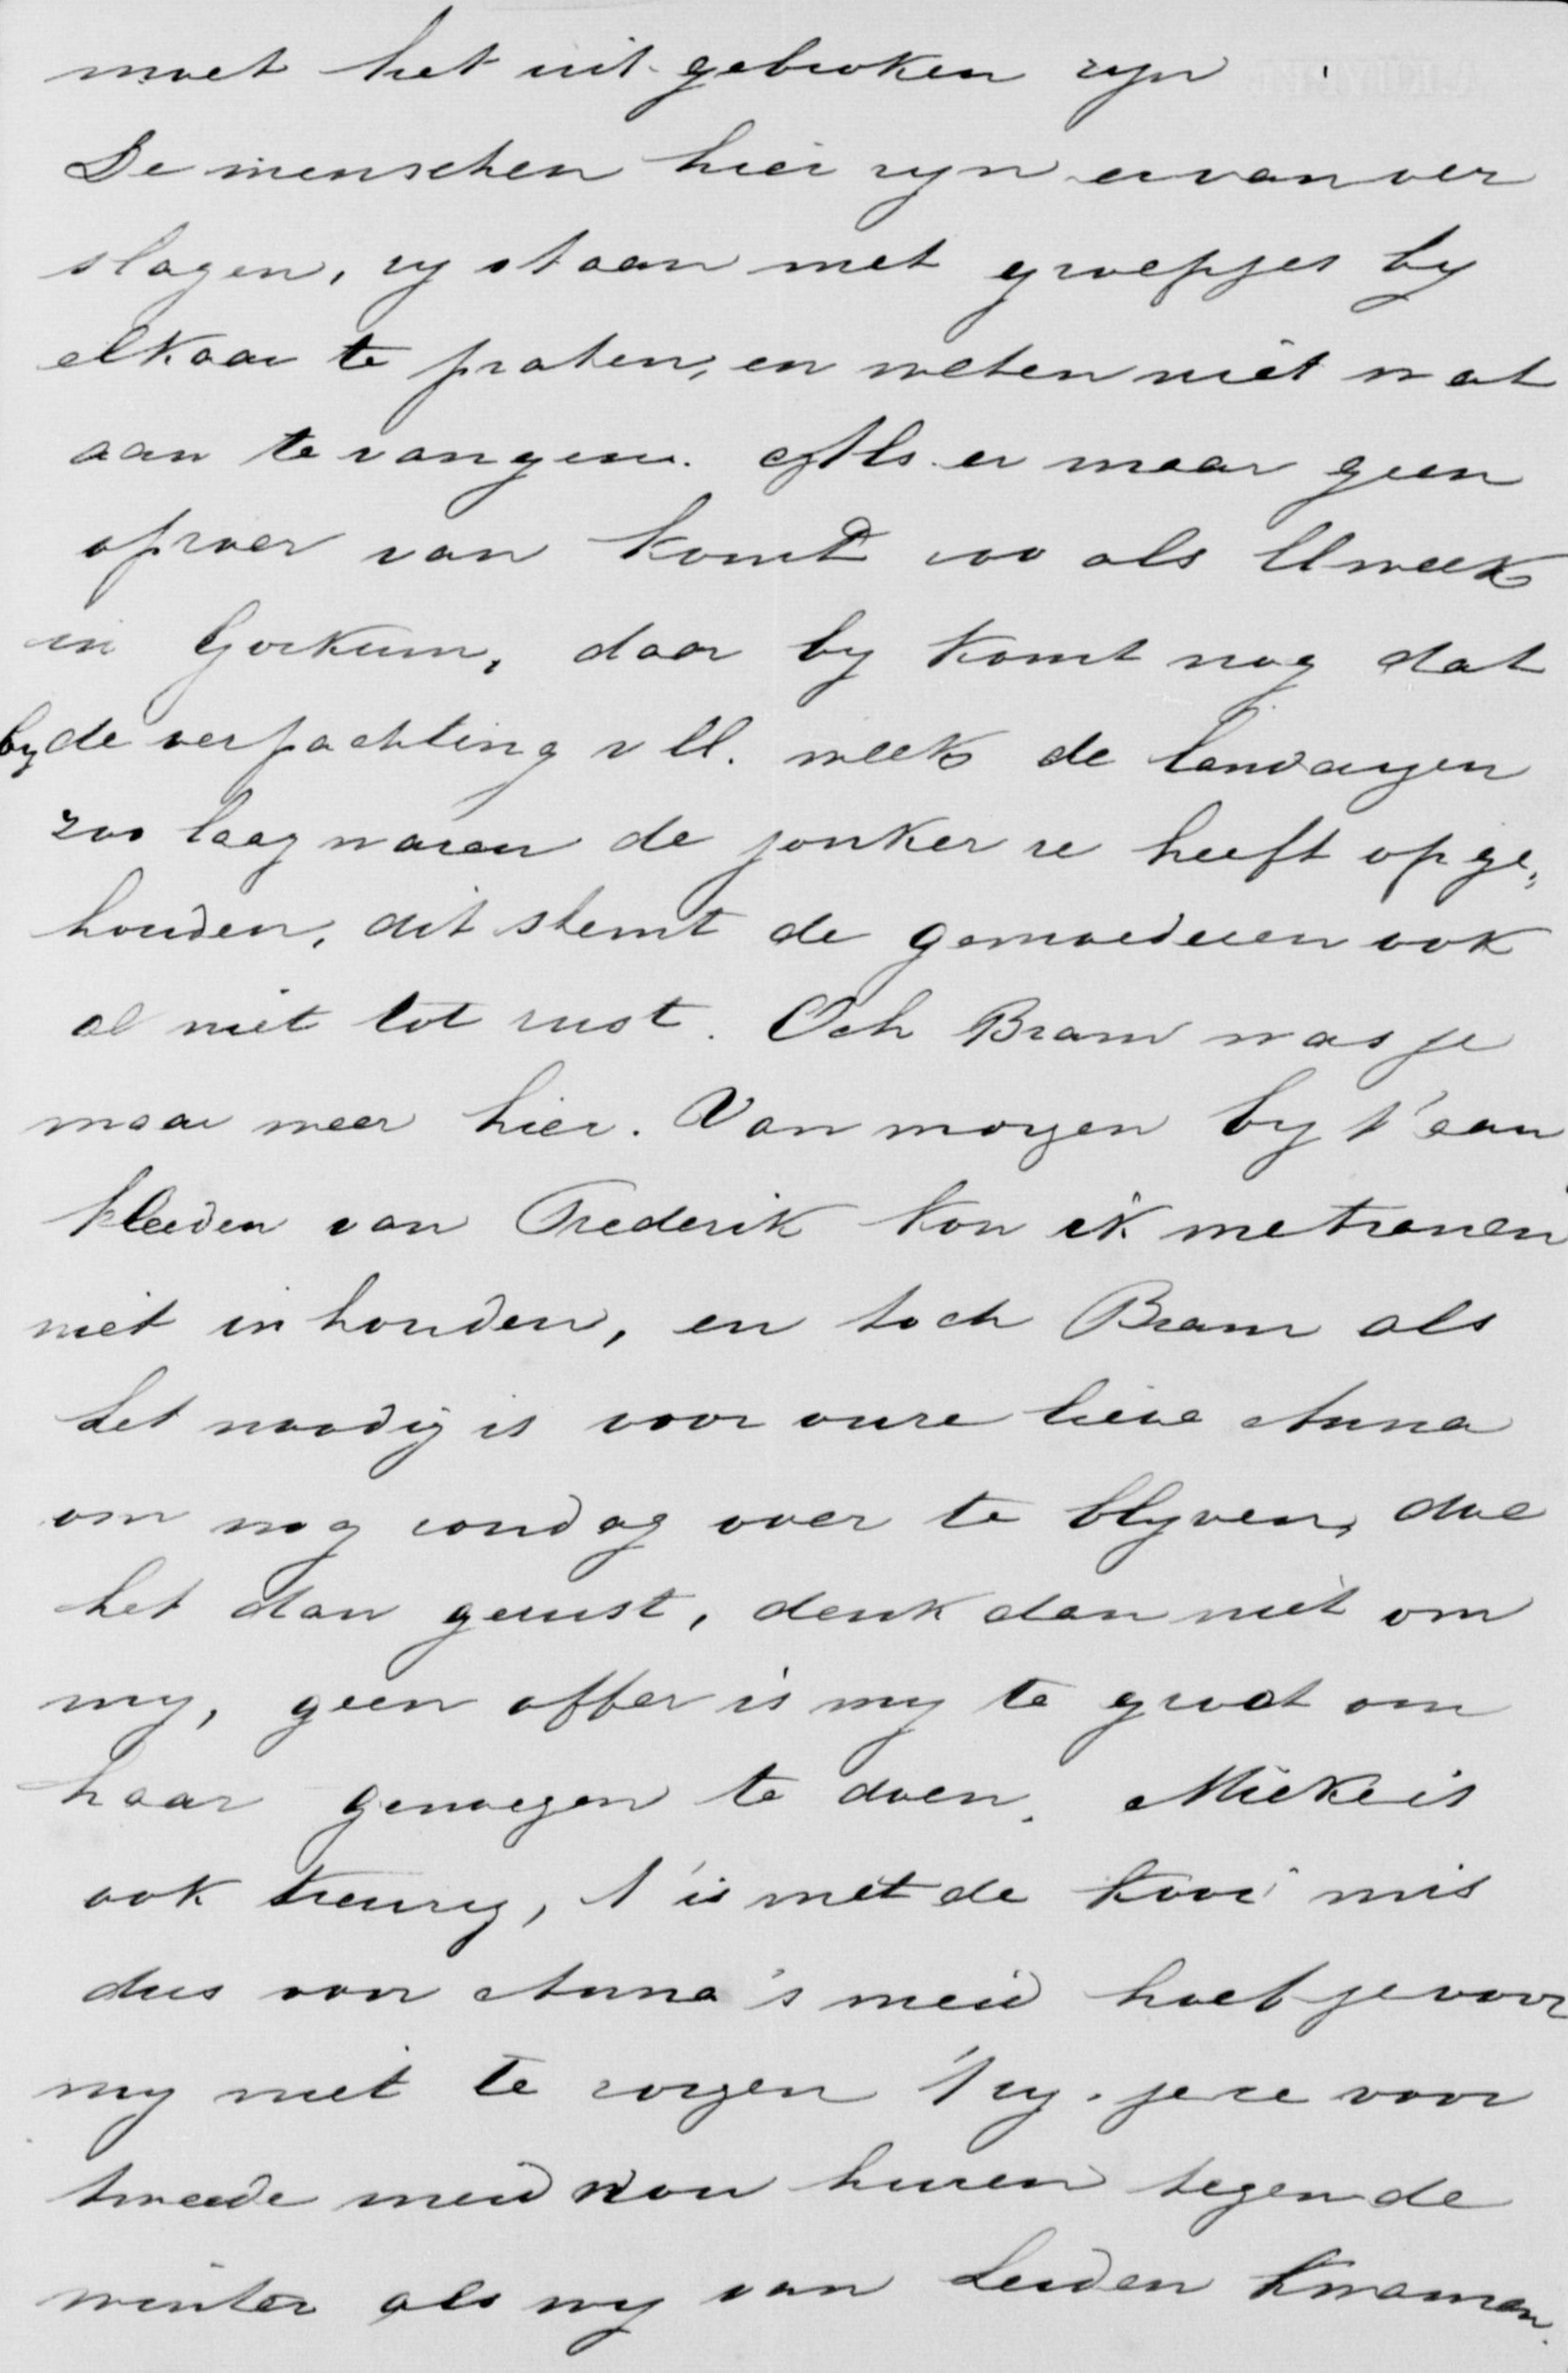 moet het uit gebroken zyn
De menschen hier zyn ervan ver
slagen, zy staan met groepjes by
elkaar te praten, en weten niet wat
aan te vangen. Als er maar geen
oproer van komt zoo als ll week
in Gorkum, daar by komt nog dat
by de verpachting v ll. week de landeryen
zoo laag waren de jonker ze heeft opge„
houden, dit stemt de gemoederen ook
al niet tot rust. Och Bram was je
maar weer hier. Van morgen by t'aan
kleeden van Frederik kon ik me tranen
niet in houden, en toch Bram als
het noodig is voor onze lieve Anna
om nog zondag over te blyven, doe
het dan gerust, denk dan niet om
my, geen offer is my te groot om
haar genoegen te doen. Mieke is
ook treurig, t'is met de kooi mis
dus voor Anna's meid hoef je voor
my niet te zorgen 'Try. je ze voor
tweede meid wou huren tegen de
winter als wy van Leiden kwamen.